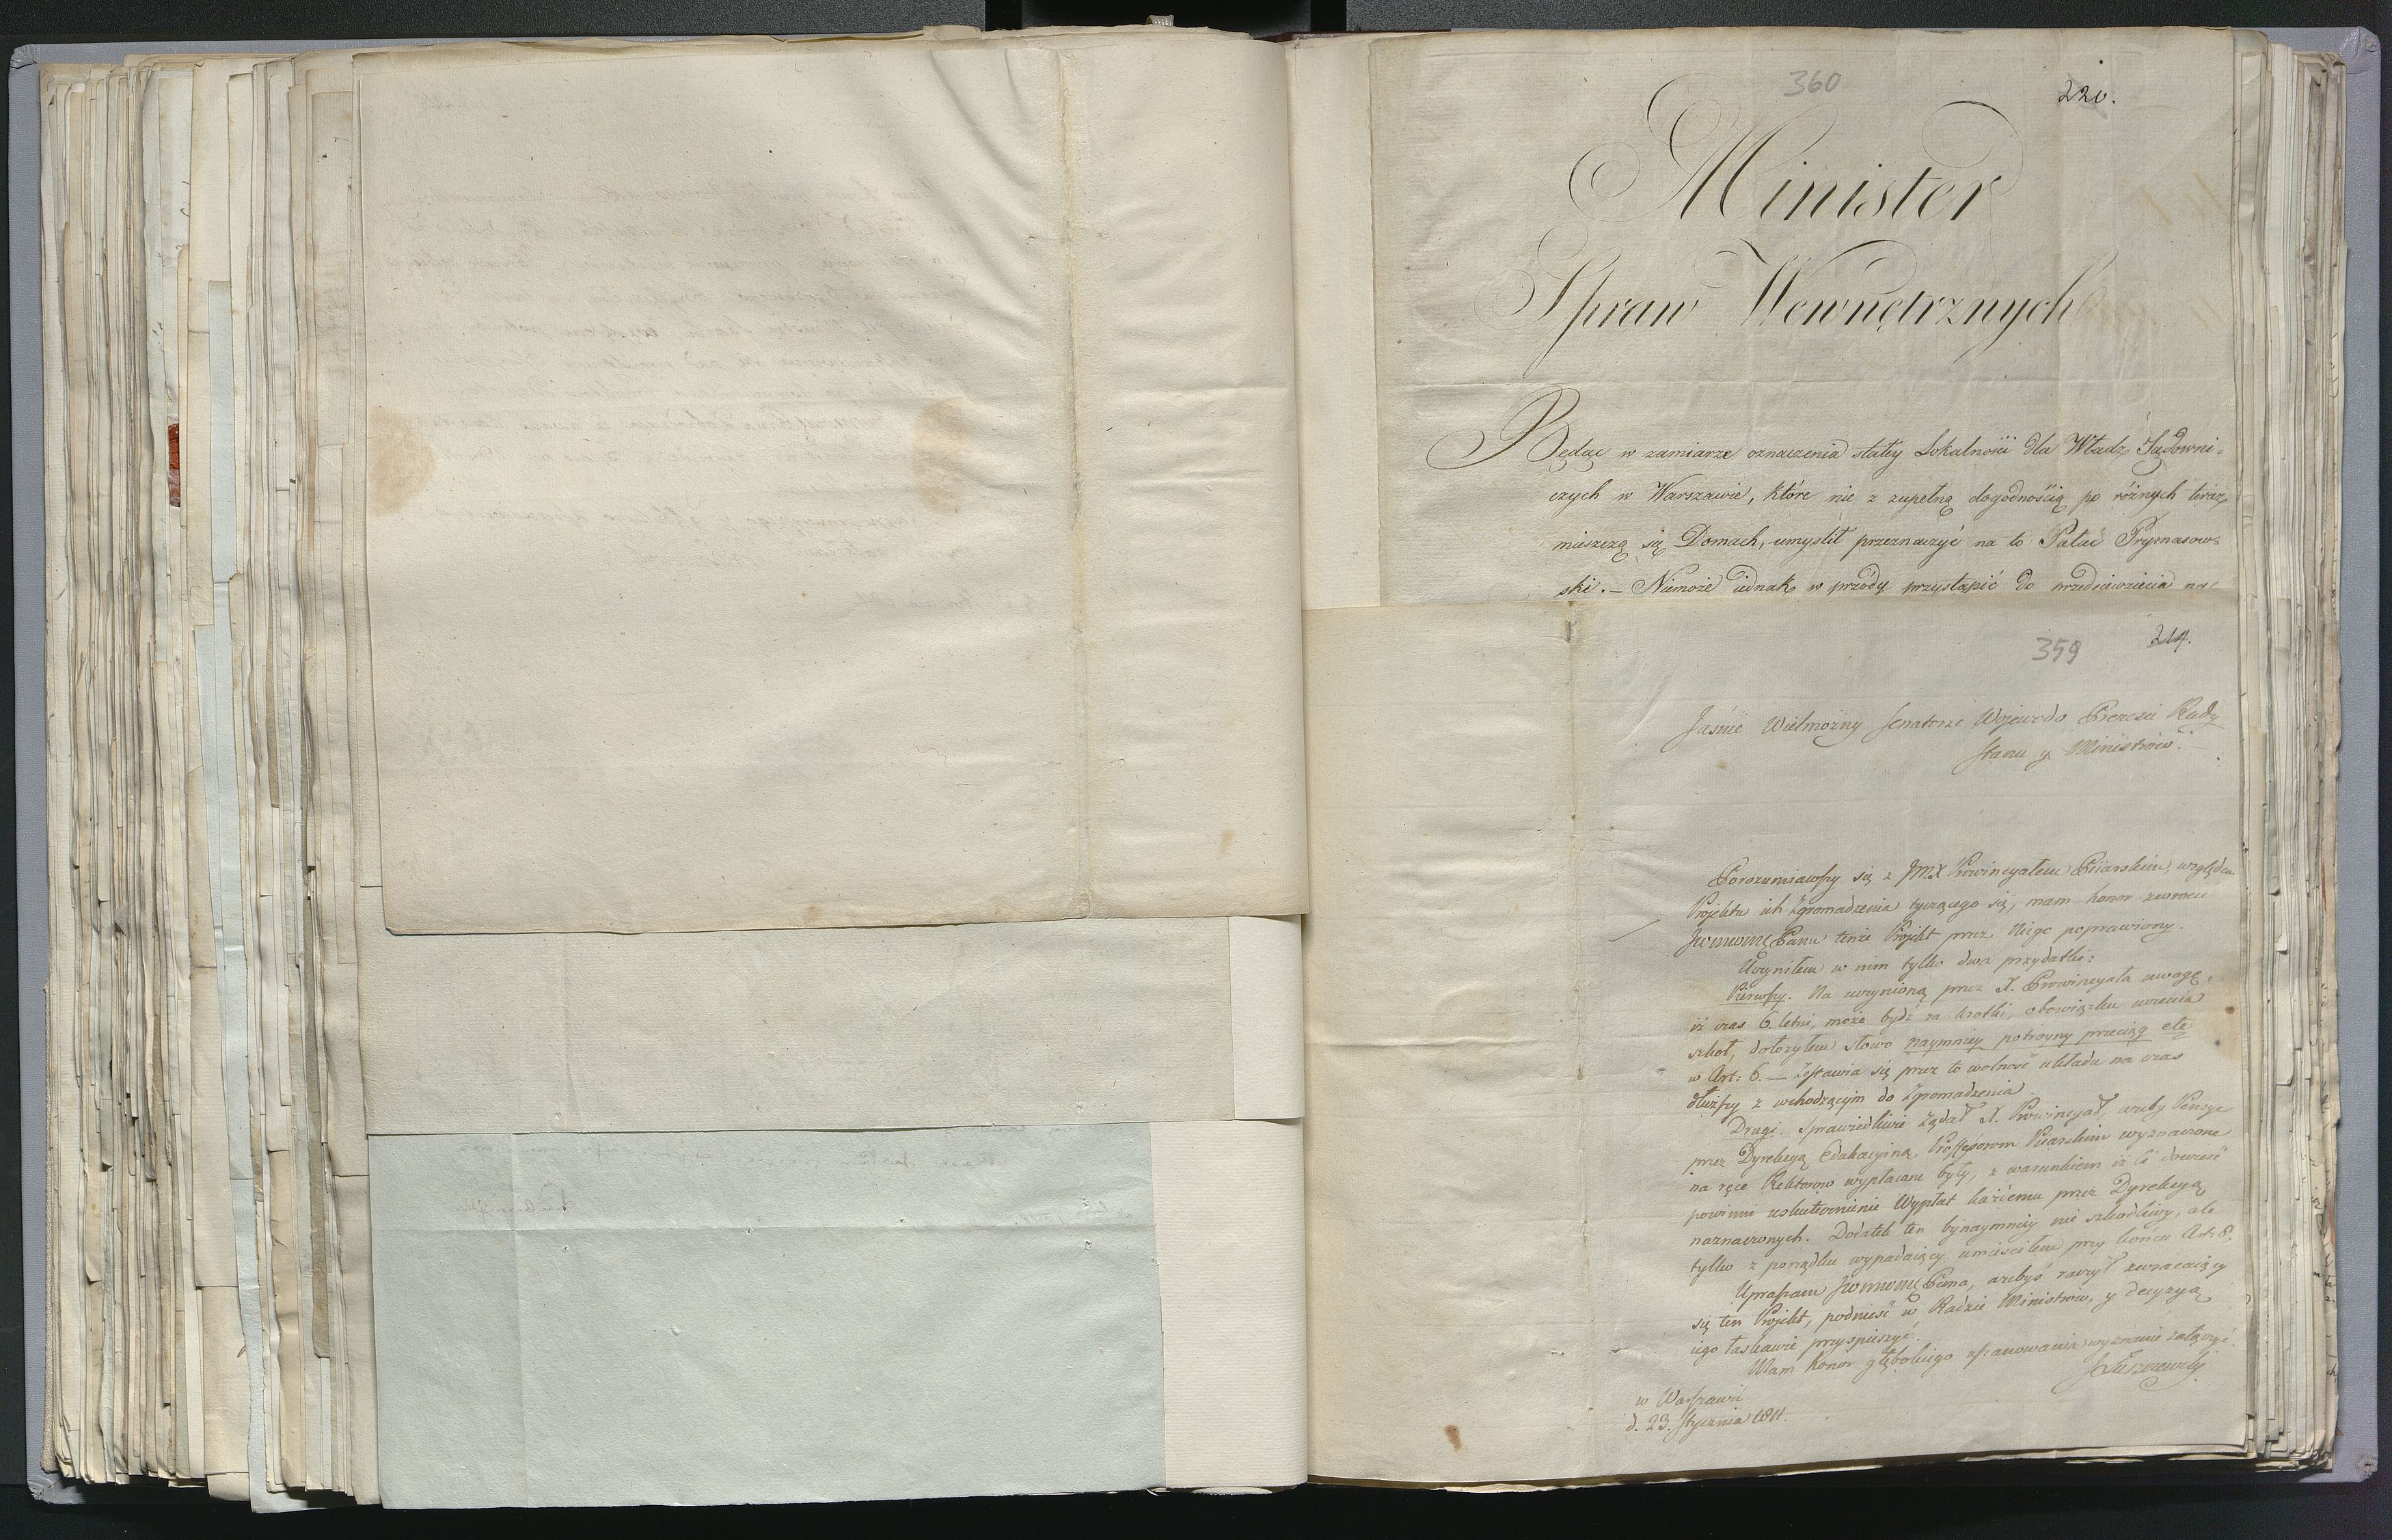 360
220.
Minister
Spraw Wewnętrznych
Będąc w zamiarze oznaczenia stałey Lokalności dla Władz Sądowni=
czych w Warszawie, które nie z zupełną dogodnością po różnych teraz
mieszczą się Domach, umyślił przeznaczyć na to Pałac Prymasow=
ski. — Niemoże iednak w przódy przystąpić do przedsiewzięcia na/
359
214.
Jaśnie Wielmożny Senatorze Woiewodo Prezesie Rady
Stanu y Ministrów.
Porozumiawszy się z JMX Prowincyałem Piiarskim, względem
Projektu ich Zgromadzenia tyczącego się, mam honor zwrócić
JWWMMć Panu tenże Projekt przez Niego poprawiony.
Uczyniłem w nim tylko dwa przydatki:
Pierwszy. Na uczynioną przez X. Prowincyała uwagę,
iż czas 6. letni, może bydź za krótki, obowiązku uczenia
szkół, dołożyłem słowo naymniey potroyny przeciąg etc
w Art: 6. — Zostawia się przez to wolność układu na czas
dłuższy z wchodzącym do Zgromadzenia.
Drugi. Sprawiedliwie żądał X. Prowincyał, ażeby Pensye
przez Dyrekcyą Edukacyiną Professorom Piiarskim wyznaczone
na ręce Rektorow wypłacane były, z warunkiem iż Ci dowieść
powinni uskutecznienie Wypłat każdemu przez Dyrekcyą
naznaczonych. Dodatek ten bynaymniey nie szkodliwy, ale
tylko z porządku wypadaiący umieściłem przy końcu Art: 8.
Upraszam JWWMMć Pana, ażebyś raczył zwracaiący
się ten Projekt, podnieść w Radzie Ministrów, y decyzyą
iego łaskawie przyspieszyć.
Mam honor głębokiego uszanowania wyznanie załączyć.
JŁuszczewski
w Warszawie
d. 23. Stycznia 1811.